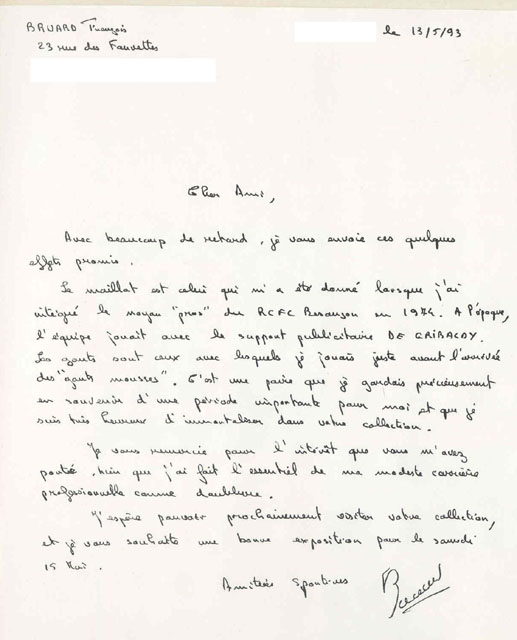 BRUARD François
le 13/5/93
23 rue des Fauvettes
Cher Ami,
Avec beaucoup de retard, je vous envoie ces quelques
effets promis.
Le maillot est celui qui m'a été donné lorsque j'ai
intégré le noyau "pros" du RCFC Besançon en 1974. A l'époque,
l'équipe jouait avec le support publicitaire DE GRIBALDY.
Les gants sont ceux avec lesquels je jouais juste avant l'arrivée
des "gants mousses". C'est une paire que je gardais précieusement
en souvenir d'une période importante pour moi et que je
suis très heureux d'immortaliser dans votre collection.
Je vous remercie pour l'intérêt que vous m'avez
porté, bien que j'ai fait l'essentiel de ma modeste carrière
professionnelle comme doublure.
J'espère pouvoir prochainement visiter votre collection,
et je vous souhaite une bonne exposition pour le samedi
15 Mai.
Amitiés Sportives